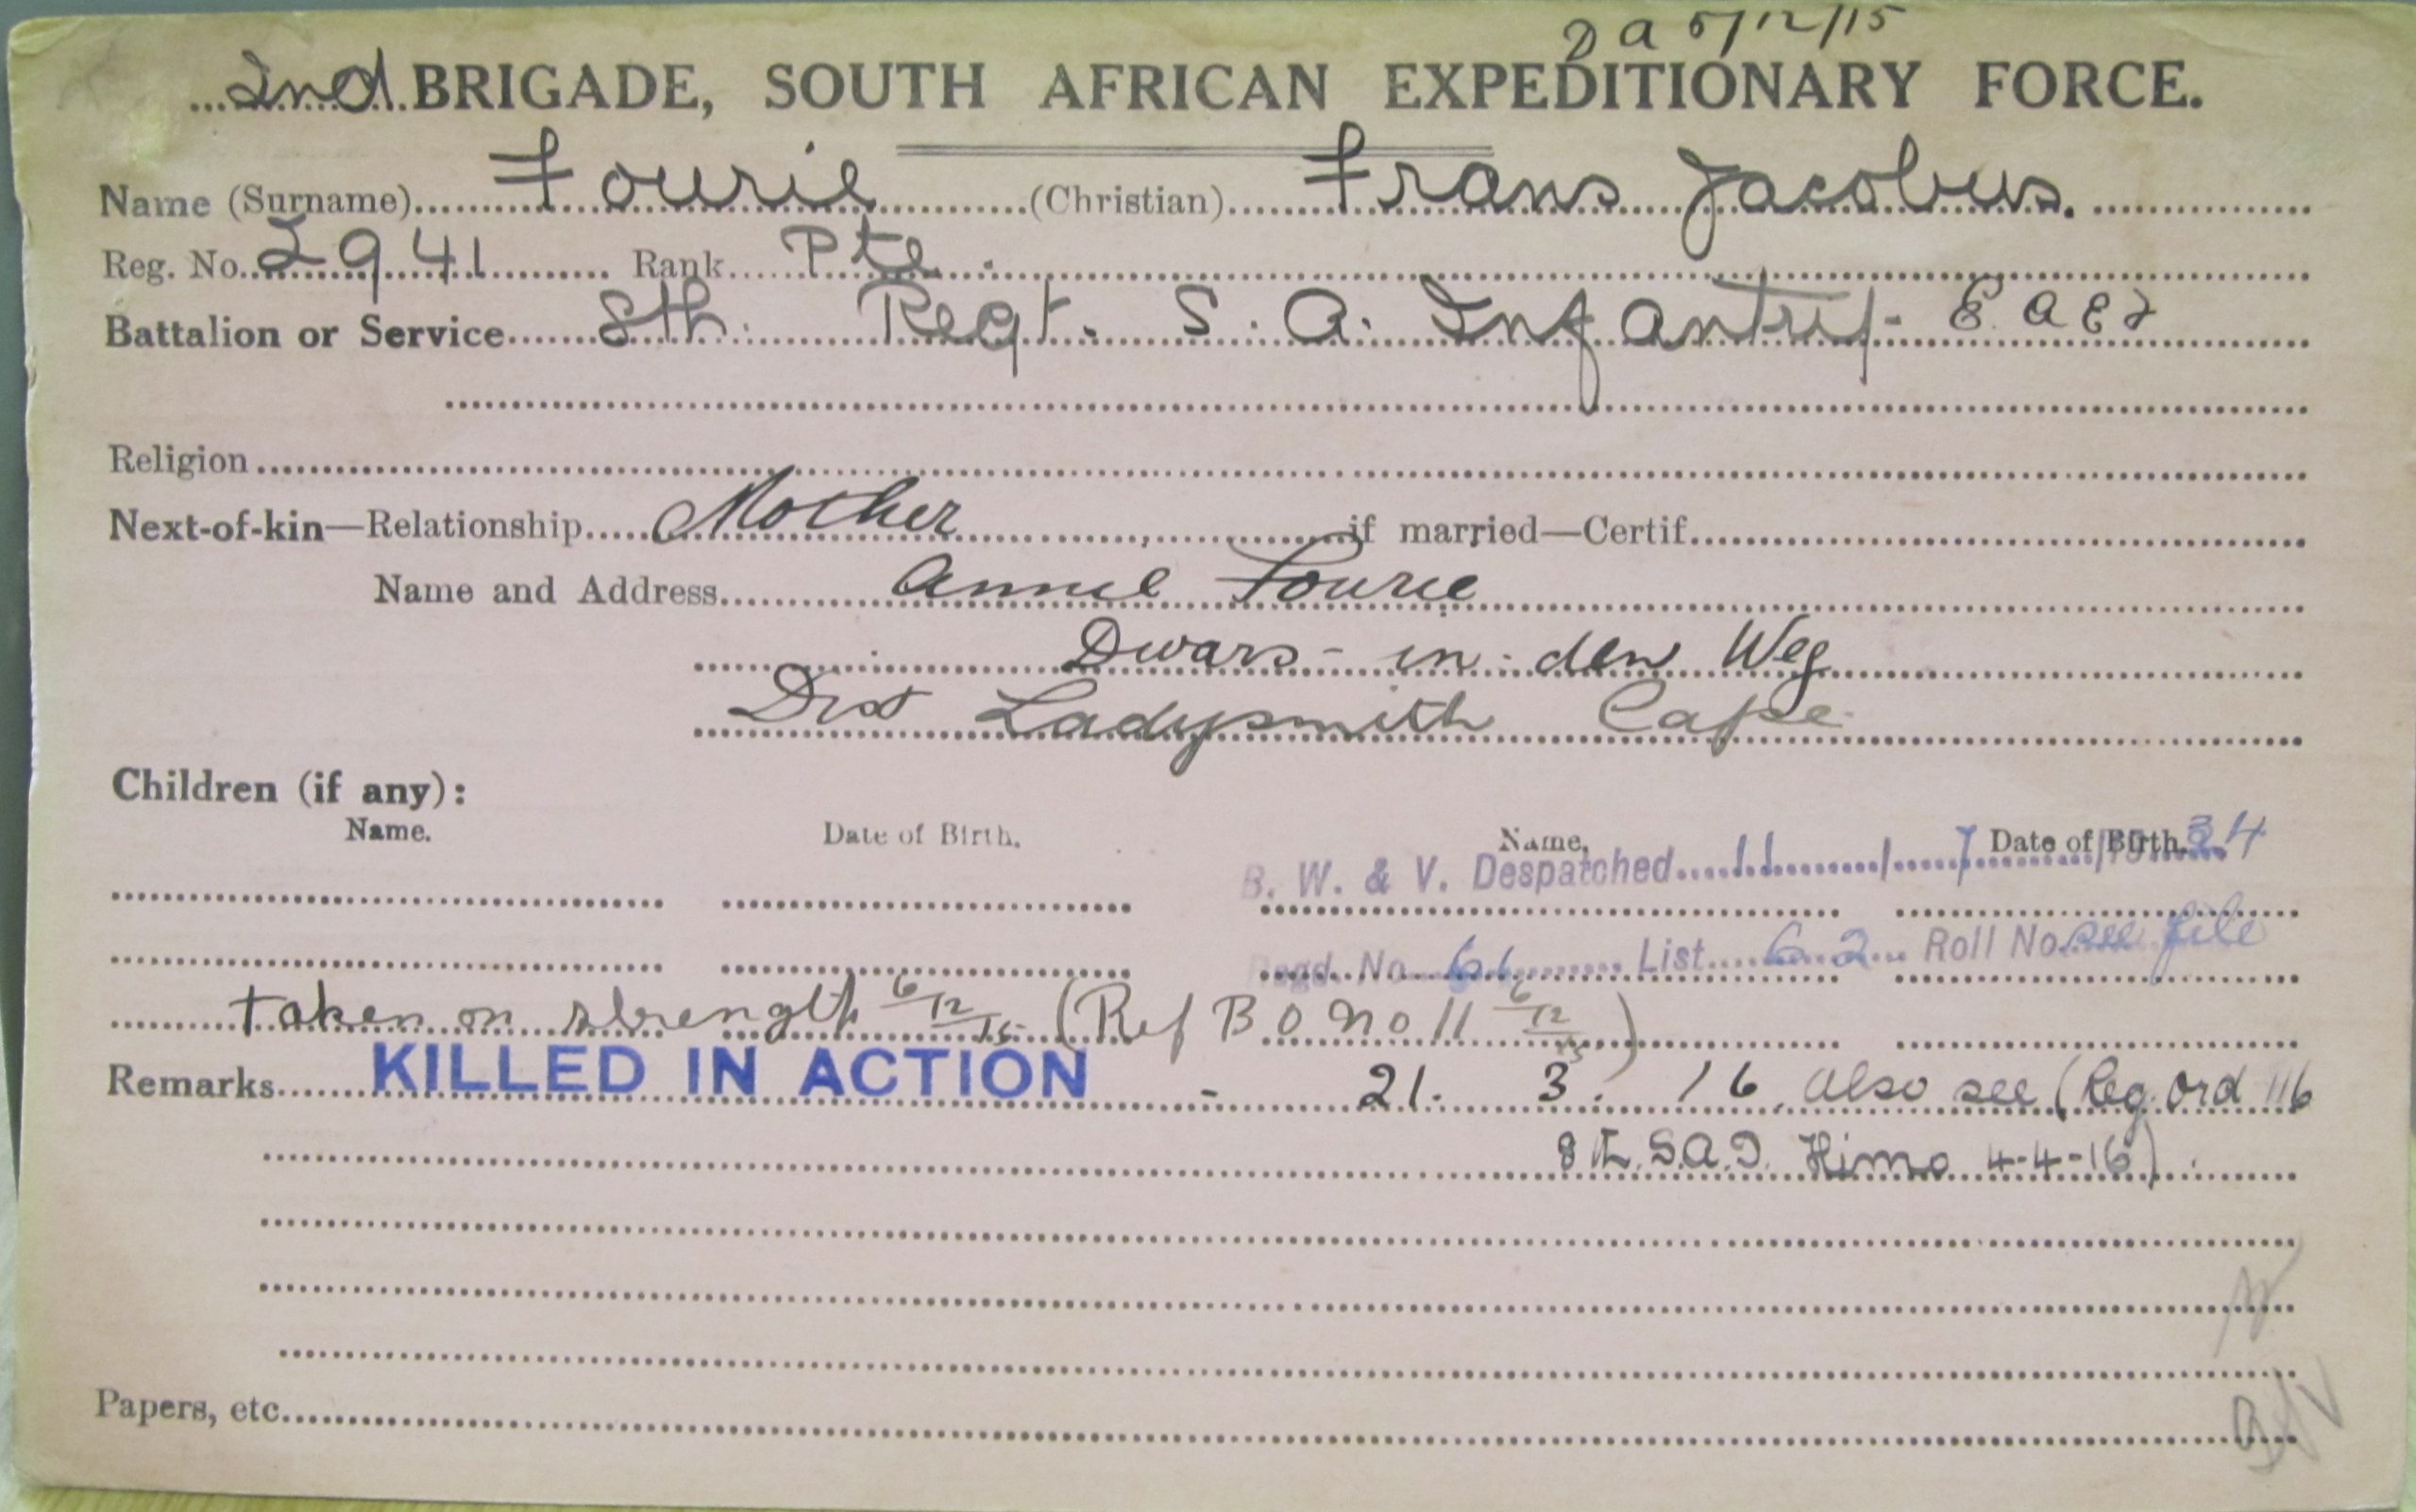 D a 5/12/15
2nd BRIGADE, SOUTH AFRICAN EXPEDITIONARY FORCE.
Name (Surname) Fourie (Christian) Frans Jacobus.
Reg. No. 2941 Rank Pte.
Battalion or Service 8th. Regt. S. A. Infantry - E. A E F
Religion
Next-of-kin—Relationship Mother if married—Certif.
Name and Address Annie Fourie
Dwars-in-den Weg
Dist Ladysmith Cape
Children (if any):
Name. Date of Birth. Name. Date of Birth.
B. W. & V. Despatched 11 / 7 /19 34
Regd. No. 61 List 62 Roll No. see file
taken on strength 6/12/15 (Ref B O No 11 6/12/15)
Remarks KILLED IN ACTION - 21. 3. 16. also see (Reg. Ord 116
8th S.A.I. Himo 4-4-16).
Papers, etc.